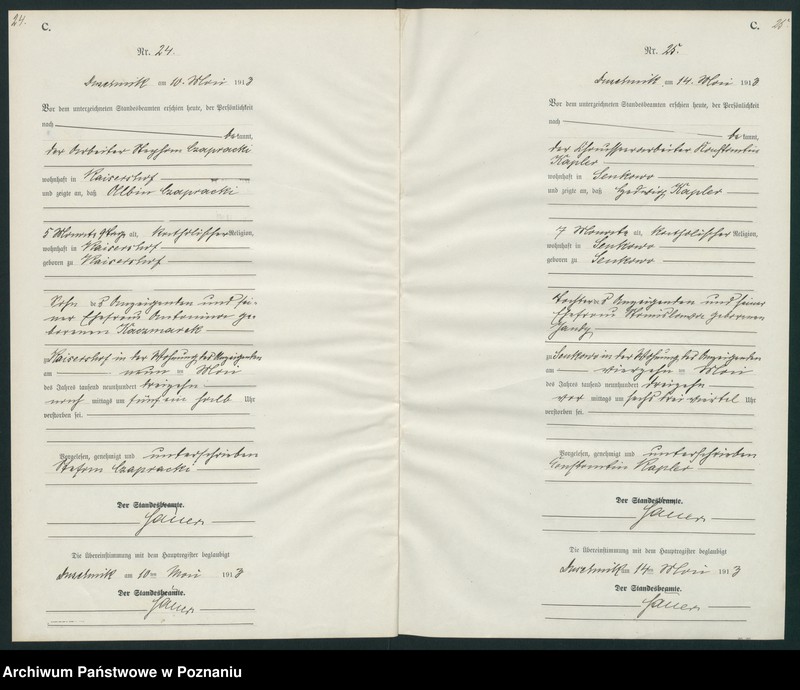 24.
C.
Nr. 24.
Duschnik am 10. Mai 1913
Vor dem unterzeichneten Standesbeamten erschien heute, der Persönlichkeit
nach
bekannt,
der Arbeiter Stephan Czapracki
wohnhaft in Kaisershof
und zeigte an, daß Albin Czapracki
5 Monate 9 Tage alt, katholischer Religion,
wohnhaft in Kaisershof
geboren zu Kaisershof
Sohn des Anzeigenden und sei-
ner Ehefrau Antonina ge-
borenen Kaczmarek
zu Kaisershof in der Wohnung des Anzeigenden
am neun ten Mai
des Jahres tausend neunhundert dreizehn
nach mittags um fünf ein halb Uhr
verstorben sei.
Vorgelesen, genehmigt und unterschrieben
Stefan Czapracki
Der Standesbeamte.
Die Übereinstimmung mit dem Hauptregister beglaubigt
Duschnik am 10ten Mai 1913
Der Standesbeamte.
C.
25
Nr. 25.
Duschnik am 14. Mai 1913
Vor dem unterzeichneten Standesbeamten erschien heute, der Persönlichkeit
nach
bekannt,
der Chausseearbeiter Konstantin
Kapler
wohnhaft in Senkowo
und zeigte an, daß Hedwig Kapler
7 Monate alt, katholischer Religion,
wohnhaft in Senkowo
geboren zu Senkowo
Tochter des Anzeigenden und seiner
Ehefrau Stanislawa geborenen
zu Senkowo in der Wohnung des Anzeigenden
am vierzehn ten Mai
des Jahres tausend neunhundert dreizehn
vor mittags um sechs drei viertel Uhr
verstorben sei.
Vorgelesen, genehmigt und unterschrieben
Constantin Kapler
Der Standesbeamte.
Die Übereinstimmung mit dem Hauptregister beglaubigt
Duschnik am 14ten Mai 1913
Der Standesbeamte.
Archiwum Państwowe w Poznaniu